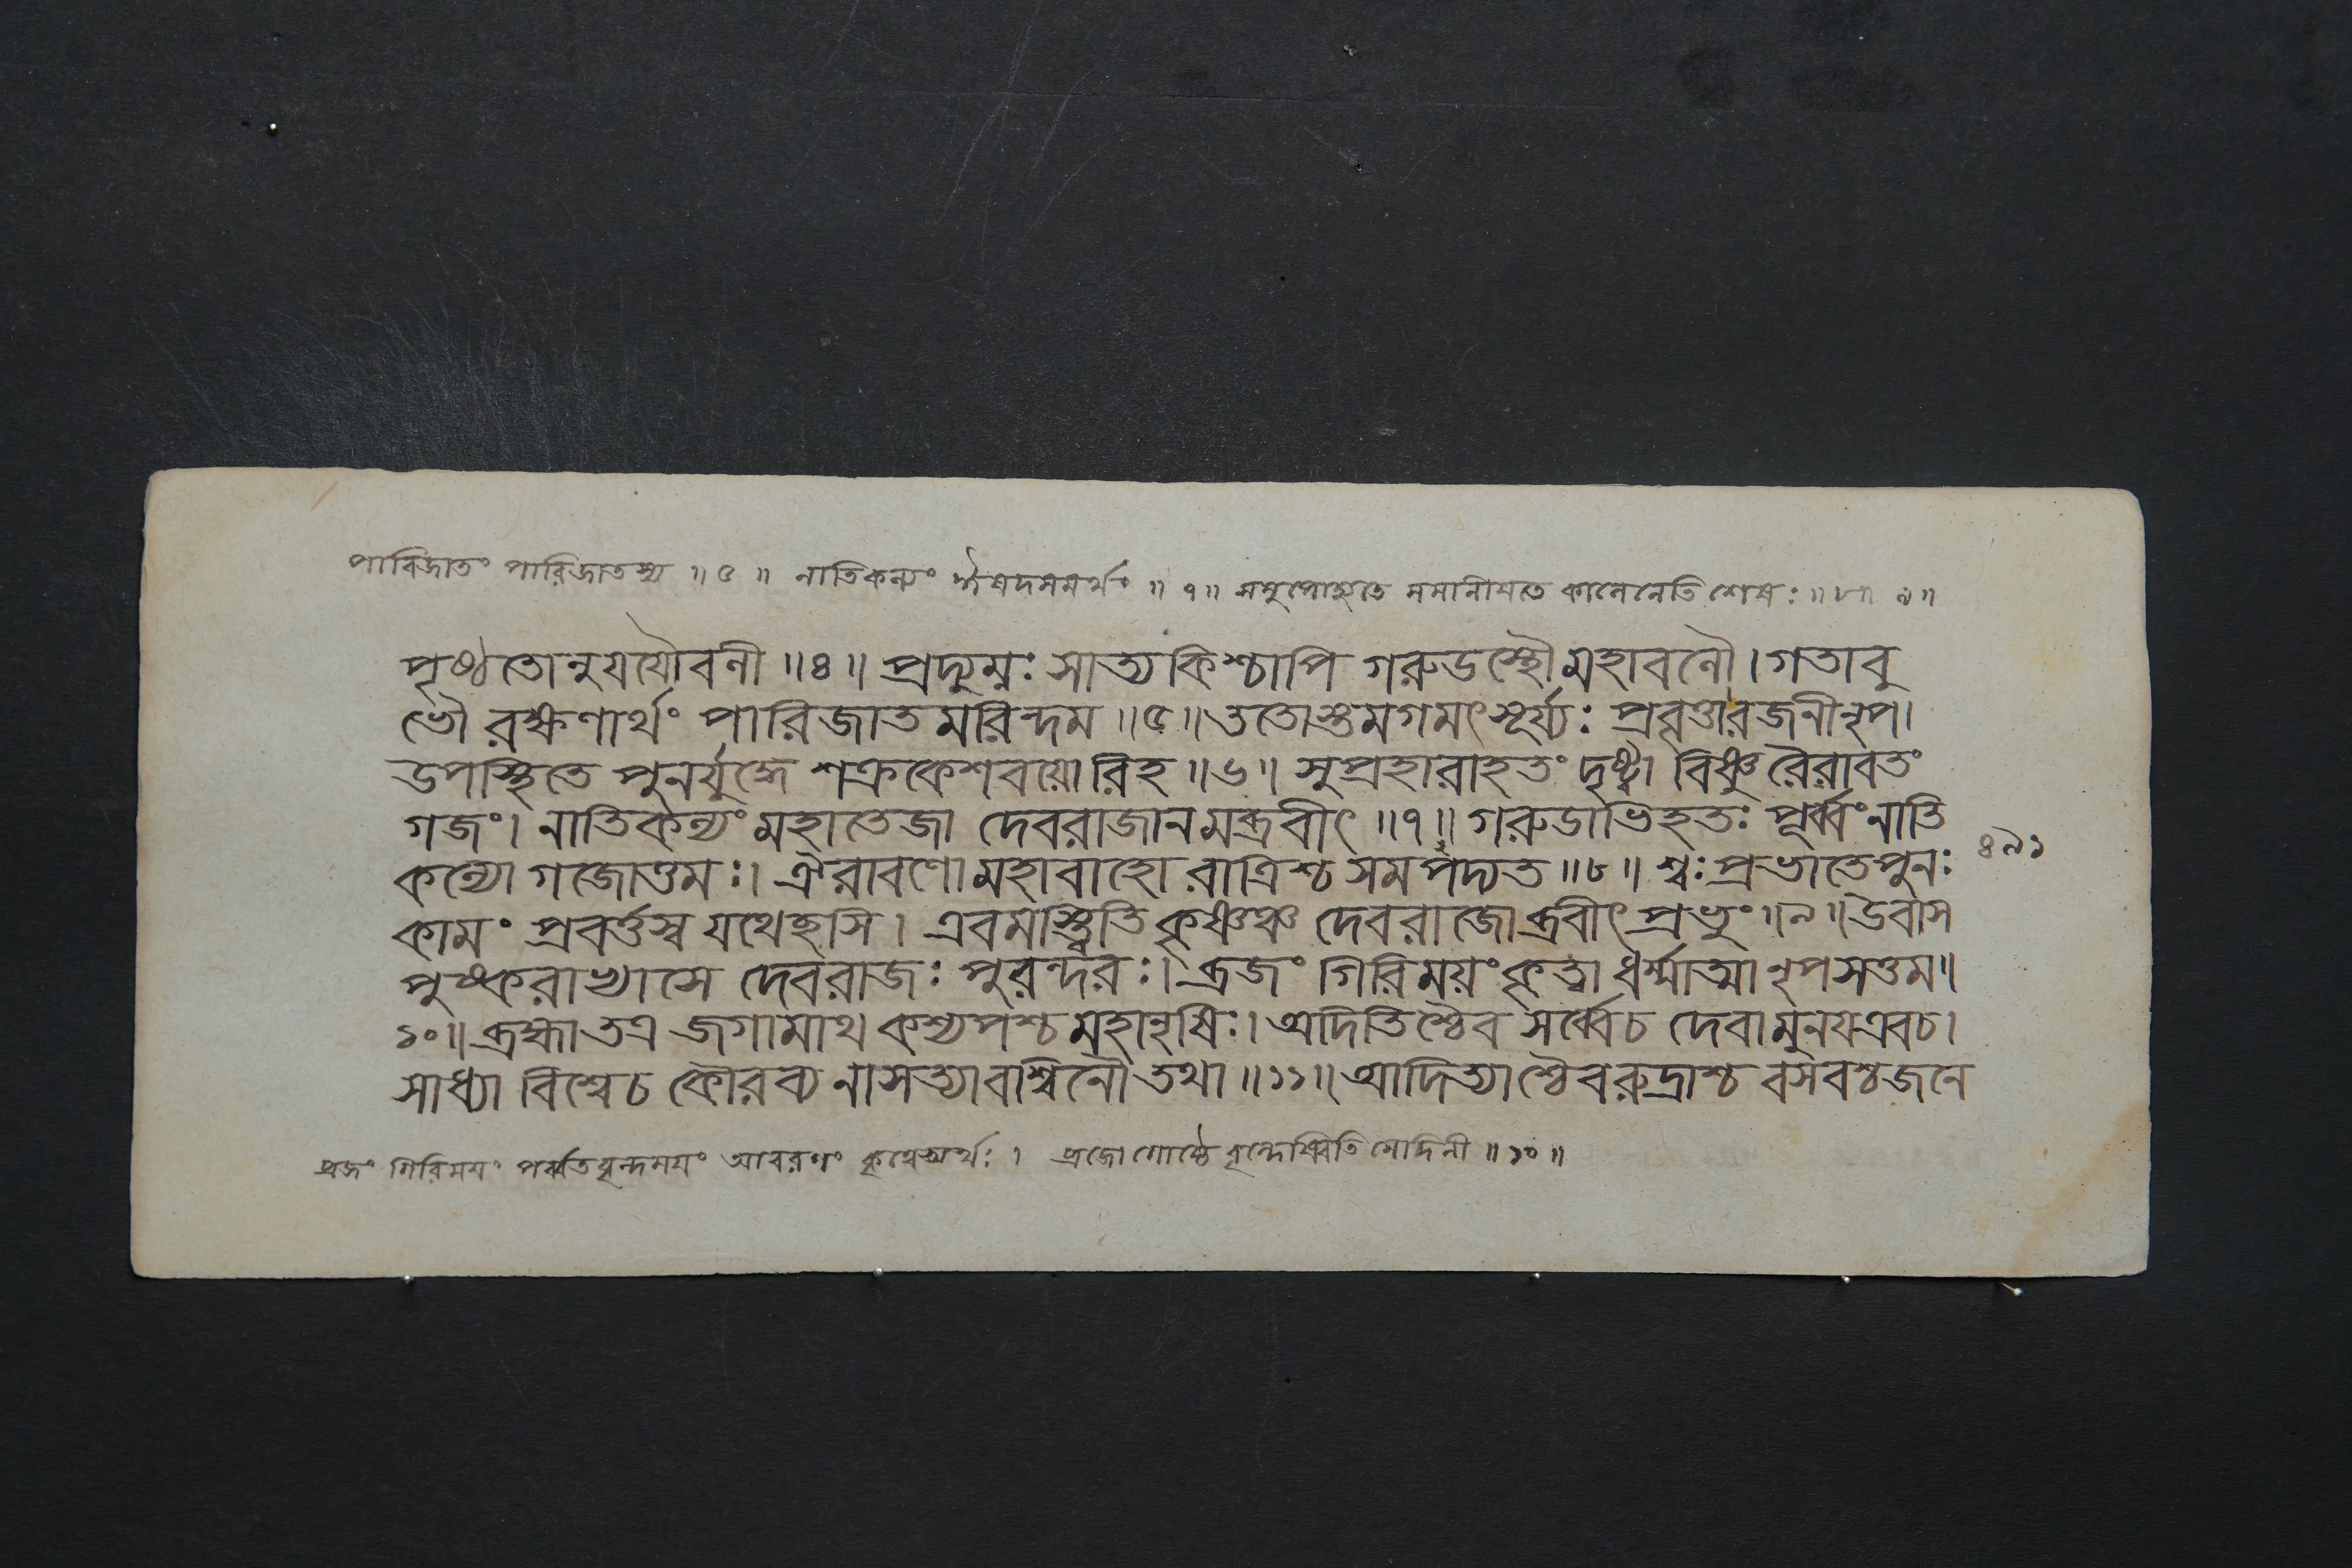 পারিজাতং পারিজাতস্য ॥ ৫ ॥ নাতিকল্যং ঈষদসমর্থং ॥ ৭ ॥ সমুপোহ্যতে সমানীয়তে কালেনেতি শেষঃ ॥ ৮ ॥ ৯ ॥
পৃষ্ঠতোনুযযৌবলী ॥ ৪ ॥ প্রদ্যুম্নঃ সাত্যকিশ্চাপি গরুডস্থৌ মহাবলৌ । গতাবু
ভৌ রক্ষণার্থং পারিজাতমরিন্দম ॥ ৫ ॥ ততোস্তমগমৎসূর্য্যঃ প্রবৃত্তারজনীনৃপ ।
উপস্থিতে পুনর্যুদ্ধে শক্রকেশবয়োরিহ ॥ ৬ ॥ সুপ্রহারাহতং দৃষ্ট্বা বিষ্ণুরৈরাবতং
গজং । নাতিকল্যং মহাতেজা দেবরাজানমব্রবীৎ ॥ ৭ ॥ গরুডাভিহতঃ পূর্ব্বং নাতি
কল্যো গজোত্তমঃ । ঐরাবণো মহাবাহো রাত্রিশ্চ সমপদ্যত ॥ ৮ ॥ শ্বঃ প্রভাতে পুনঃ
৪৯১
কামং প্রবর্ত্তস্ব যথেচ্ছসি । এবমস্ত্বিতি কৃষ্ণঞ্চ দেবরাজোব্রবীৎ প্রভুং ॥ ৯ ॥ উবাস
পুষ্করাভ্যাসে দেবরাজঃ পুরন্দরঃ । ব্রজং গিরিময়ং কৃত্বা ধর্ম্মাত্মা নৃপসত্তম ॥
১০ ॥ ব্রহ্মা তত্র জগামাথ কশ্যপশ্চ মহানৃষিঃ । অদিতিশ্চৈব সর্ব্বেচ দেবামুনয়এবচ ।
সাধ্যা বিশ্বেচ কৌরব্য নাসত্যাবাশ্বিনৌ তথা ॥ ১১ ॥ আদিত্যাশ্চৈবরুদ্রাশ্চ বসবশ্চজনে
ব্রজং গিরিময়ং পর্ব্বতবৃন্দময়ং আবরণং কৃত্বেত্যর্থঃ । ব্রজো গোষ্ঠে বৃন্দেষ্বিতি মেদিনী ॥ ১০ ॥